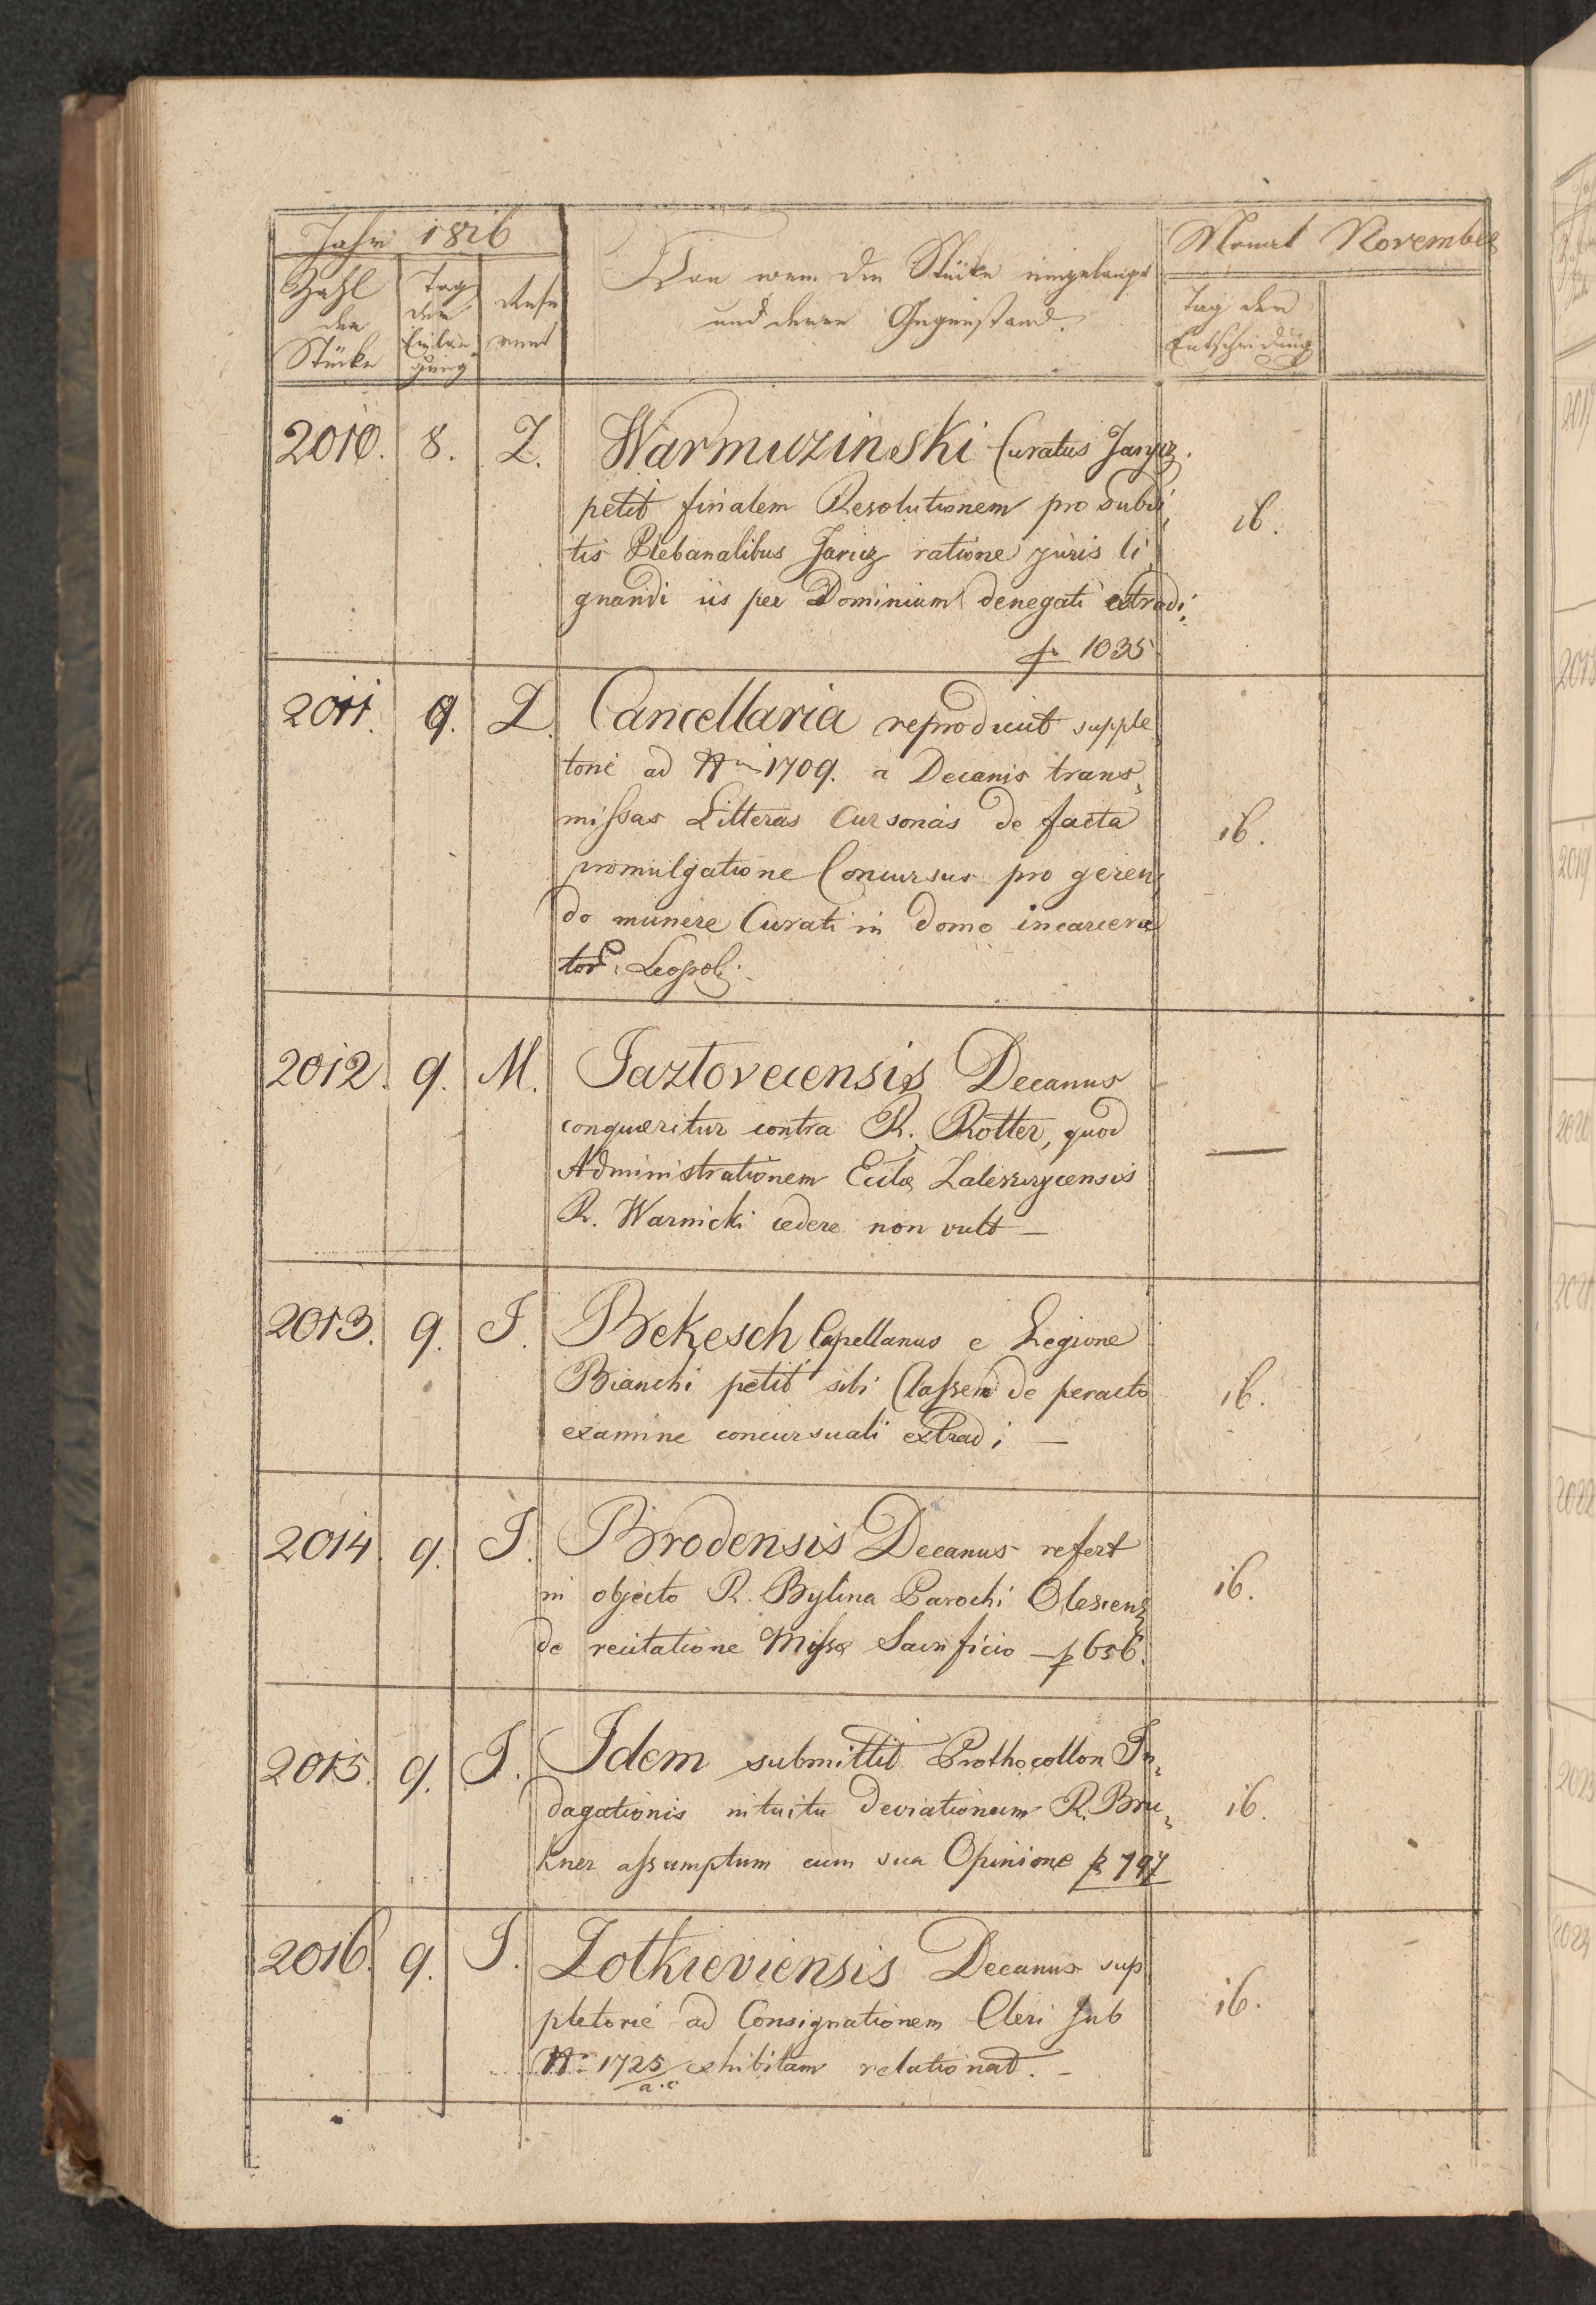 Jahr 1826
Monat November
Zahl der Stücke
Tag der Einlangung
Refe rent
Von wem die Stücke eingelangt
und deren Gegenstand.
Tag der
Entscheidung
2010. 8. Z. Warmuzinski Curatus
petit finalem Resolutionem pro subdi,
tis Plebanalibus ratione juris li,
gnandi iis per Dominium denegati extradi.
p 1035
16.
2011. 9. Z. Cancellaria reproducit supple,
torie ad Nrum 1709. a Decanis trans,
missas Litteras Cursorias de facta
promulgatione Concursus pro geren,
do munere Curati in domo incarcera
tor. Leopoli.
16.
2012. 9. M. Jaztovecensis Decanus
conquæritur contra R. Rotter, quod
Administrationem Eccle Zaleszczycensis
R. Warnicki cedere non vult —
—
2013. 9. J. Bekesch Capellanus e Legione
Bianchi petit sibi Classem de peracto
examine concursuali extradi —
16.
2014. 9. J. Brodensis Decanus refert
in objecto R. Bylina Parochi Olesiens
de recitatione Missæ Sacrificio — p 656.
16.
2015. 9. J. Idem submittit Prothocollon In,
dagationis intuitu deviationum R. Bru,
kner assumptum cum sua Opinione p 797
16.
2016. 9. J. Zolkieviensis Decanus sup
pletorie ad Consignationem Cleri sub
N: 1725 a.c exhibitam relationat. —
16.